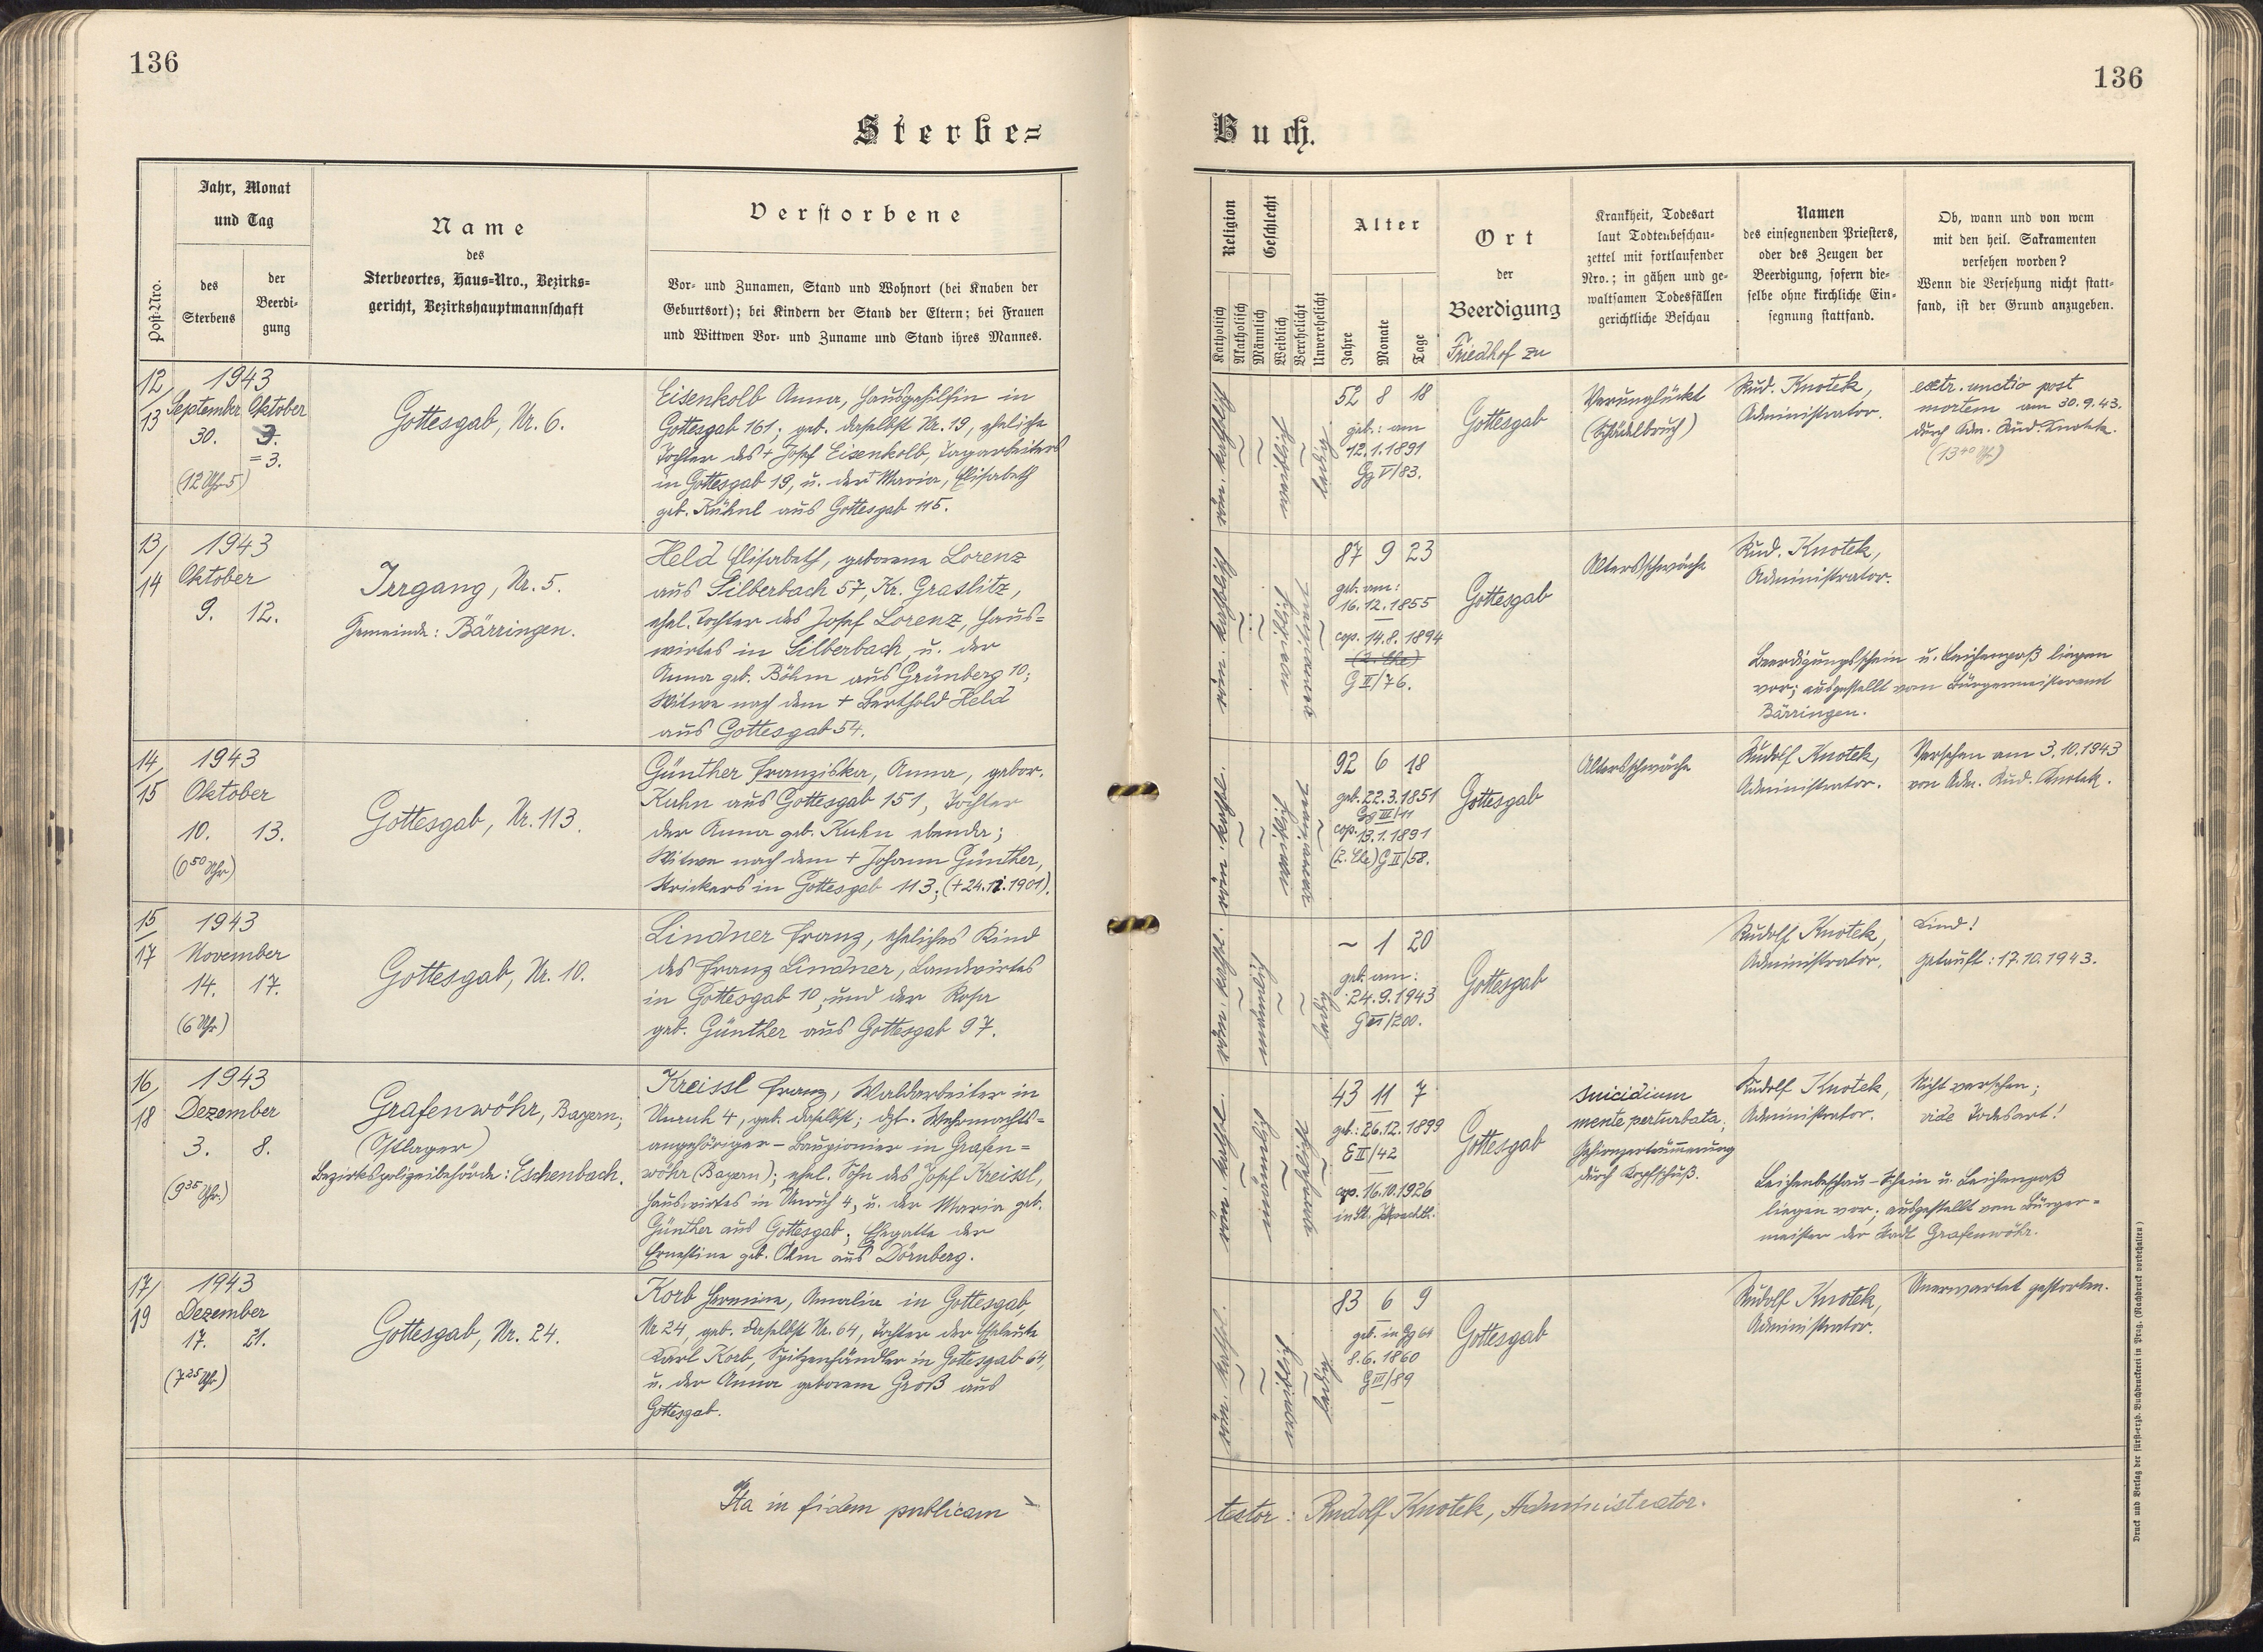 136
136
Sterbe=
Buch.
Post-Nro.
Jahr, Monat
und Tag
des
Sterbens
der
Beerdi-
gung
Name
des
Sterbeortes, Haus=Nro., Bezirks=
gericht, Bezirkshauptmannschaft
Verstorbene
Vor- und Zunamen, Stand und Wohnort (bei Knaben der
Geburtsort); bei Kindern der Stand der Eltern; bei Frauen
und Wittwen Vor- und Zuname und Stand ihres Mannes.
Religion
Katholisch
Akatholisch
Geschlecht
Männlich
Weiblich
Verehelicht
Unverehelicht
Alter
Jahre
Monate
Tage
Ort
der
Beerdigung
Friedhof zu
Krankheit, Todesart
laut Todtenbeschau-
zettel mit fortlaufender
Nro.; in gähen und ge-
waltsamen Todesfällen
gerichtliche Beschau
Namen
des einsegnenden Priesters,
oder des Zeugen der
Beerdigung, sofern die-
selbe ohne kirchliche Ein-
segnung stattfand.
Ob, wann und von wem
mit den heil. Sakramenten
versehen worden?
Wenn die Versehung nicht statt-
fand, ist der Grund anzugeben.
12/
13
1943
September Oktober
30. 3.
= 3.
(12 Uhr 5)
Gottesgab, Nr. 6.
Eisenkolb Anna, Hausgehilfin in
Gottesgab 161; geb. daselbst Nr. 19, eheliche
Tochter des + Josef Eisenkolb, Tagarbeiters
in Gottesgab 19, u. der Maria, Elisabeth
geb. Kühnl aus Gottesgab 115.
röm. katholisch
weiblich
ledig
52 8 18
geb.: am
12.1.1891
Gg V/83.
Gottesgab
Verunglückt
(Schädelbruch)
Rud. Knotek,
Administrator.
extr. unctio post
mortem am 30.9.43.
durch Adm. Rud. Knotek.
(13 40 Uhr)
13/
14
1943
Oktober
9. 12.
Irrgang, Nr. 5.
Gemeinde: Bärringen.
Held Elisabeth, geborene Lorenz
aus Silberbach 57, Kr. Graslitz,
ehel. Tochter des Josef Lorenz, Haus=
wirtes in Silberbach, u. der
Anna geb. Böhm aus Grünberg 10;
Witwe nach dem + Berthold Held
aus Gottesgab 54.
röm. katholisch
weiblich
verwitwet
87 9 23
geb. am:
16.12.1855
cop. 14.8.1894
(2. Ehe)
G II/76.
Gottesgab
Altersschwäche
Rud. Knotek,
Administrator.
Beerdigungsschein u. Leichenpaß liegen
vor; ausgestellt vom Bürgermeisteramt
Bärringen.
14/
15
1943
Oktober
10. 13.
(0 50 Uhr)
Gottesgab, Nr. 113.
Günther Franziska, Anna, gebor.
Kuhn aus Gottesgab 151, Tochter
der Anna geb. Kuhn ebenda;
Witwe nach dem + Johann Günther,
Strickers in Gottesgab 113; (+ 24.12.1901).
röm. kathol.
weiblich
verwitwet
92 6 18
geb. 22.3.1851
Gg III/11
cop. 13.1.1891
(2. Ehe) G II/58.
Gottesgab
Altersschwäche
Rudolf Knotek,
Administrator.
Versehen am 3.10.1943
von Adm. Rud. Knotek.
15
17
1943
November
14. 17.
(6 Uhr)
Gottesgab, Nr. 10.
Lindner Franz, eheliches Kind
des Franz Lindner, Landwirtes
in Gottesgab 10, und der Rosa
geb. Günther aus Gottesgab 97.
röm. kathol.
männlich
ledig
~ 1 20
geb. am:
24.9.1943
G VI/200.
Gottesgab
Rudolf Knotek,
Administrator.
Kind!
getauft: 17.10.1943.
16/
18
1943
Dezember
3. 8.
(9 35 Uhr.)
Grafenwöhr, Bayern;
(Ostlager)
Bezirkspolizeibehörde: Eschenbach.
Kreissl Franz, Waldarbeiter in
Unruh 4, geb. daselbst; dzt. Wehrmachts=
angehöriger – Baupionier in Grafen=
wöhr (Bayern); ehel. Sohn des Josef Kreissl,
Hauswirtes in Unruh 4, u. der Maria geb.
Günther aus Gottesgab; Ehegatte der
Ernestine geb. Ohm aus Dörnberg.
röm. kathol.
männlich
verehelicht
43 11 7
geb.: 26.12.1899
E II/42
cop. 16.10.1926
in St.
Gottesgab
Suicidium
mente perturbata;
Gehirnzertrümmerung
durch Kopfschuß.
Rudolf Knotek,
Administrator.
Nicht versehen;
vide Todesart!
Leichenbeschau-Schein u. Leichenpaß
liegen vor; ausgestellt vom Bürger=
meister der Stadt Grafenwöhr.
17/
19
1943
Dezember
17. 21.
(7 25 Uhr)
Gottesgab, Nr. 24.
Korb Hermine, Amalia in Gottesgab,
Nr 24, geb. daselbst Nr. 64, Tochter der Eheleute
Karl Korb, Spitzenhändler in Gottesgab 64,
u. der Anna geborene Groß aus
Gottesgab.
röm. kathol.
weiblich
ledig
83 6 9
geb. in Gg 64
8.6.1860
G III/89
Gottesgab
Rudolf Knotek,
Administrator.
Unerwartet gestorben.
Ita in fidem publicam
testor: Rudolf Knotek, Administrator.
Druck und Verlag der fürst-erzb. Buchdruckerei in Prag. (Nachdruck vorbehalten)